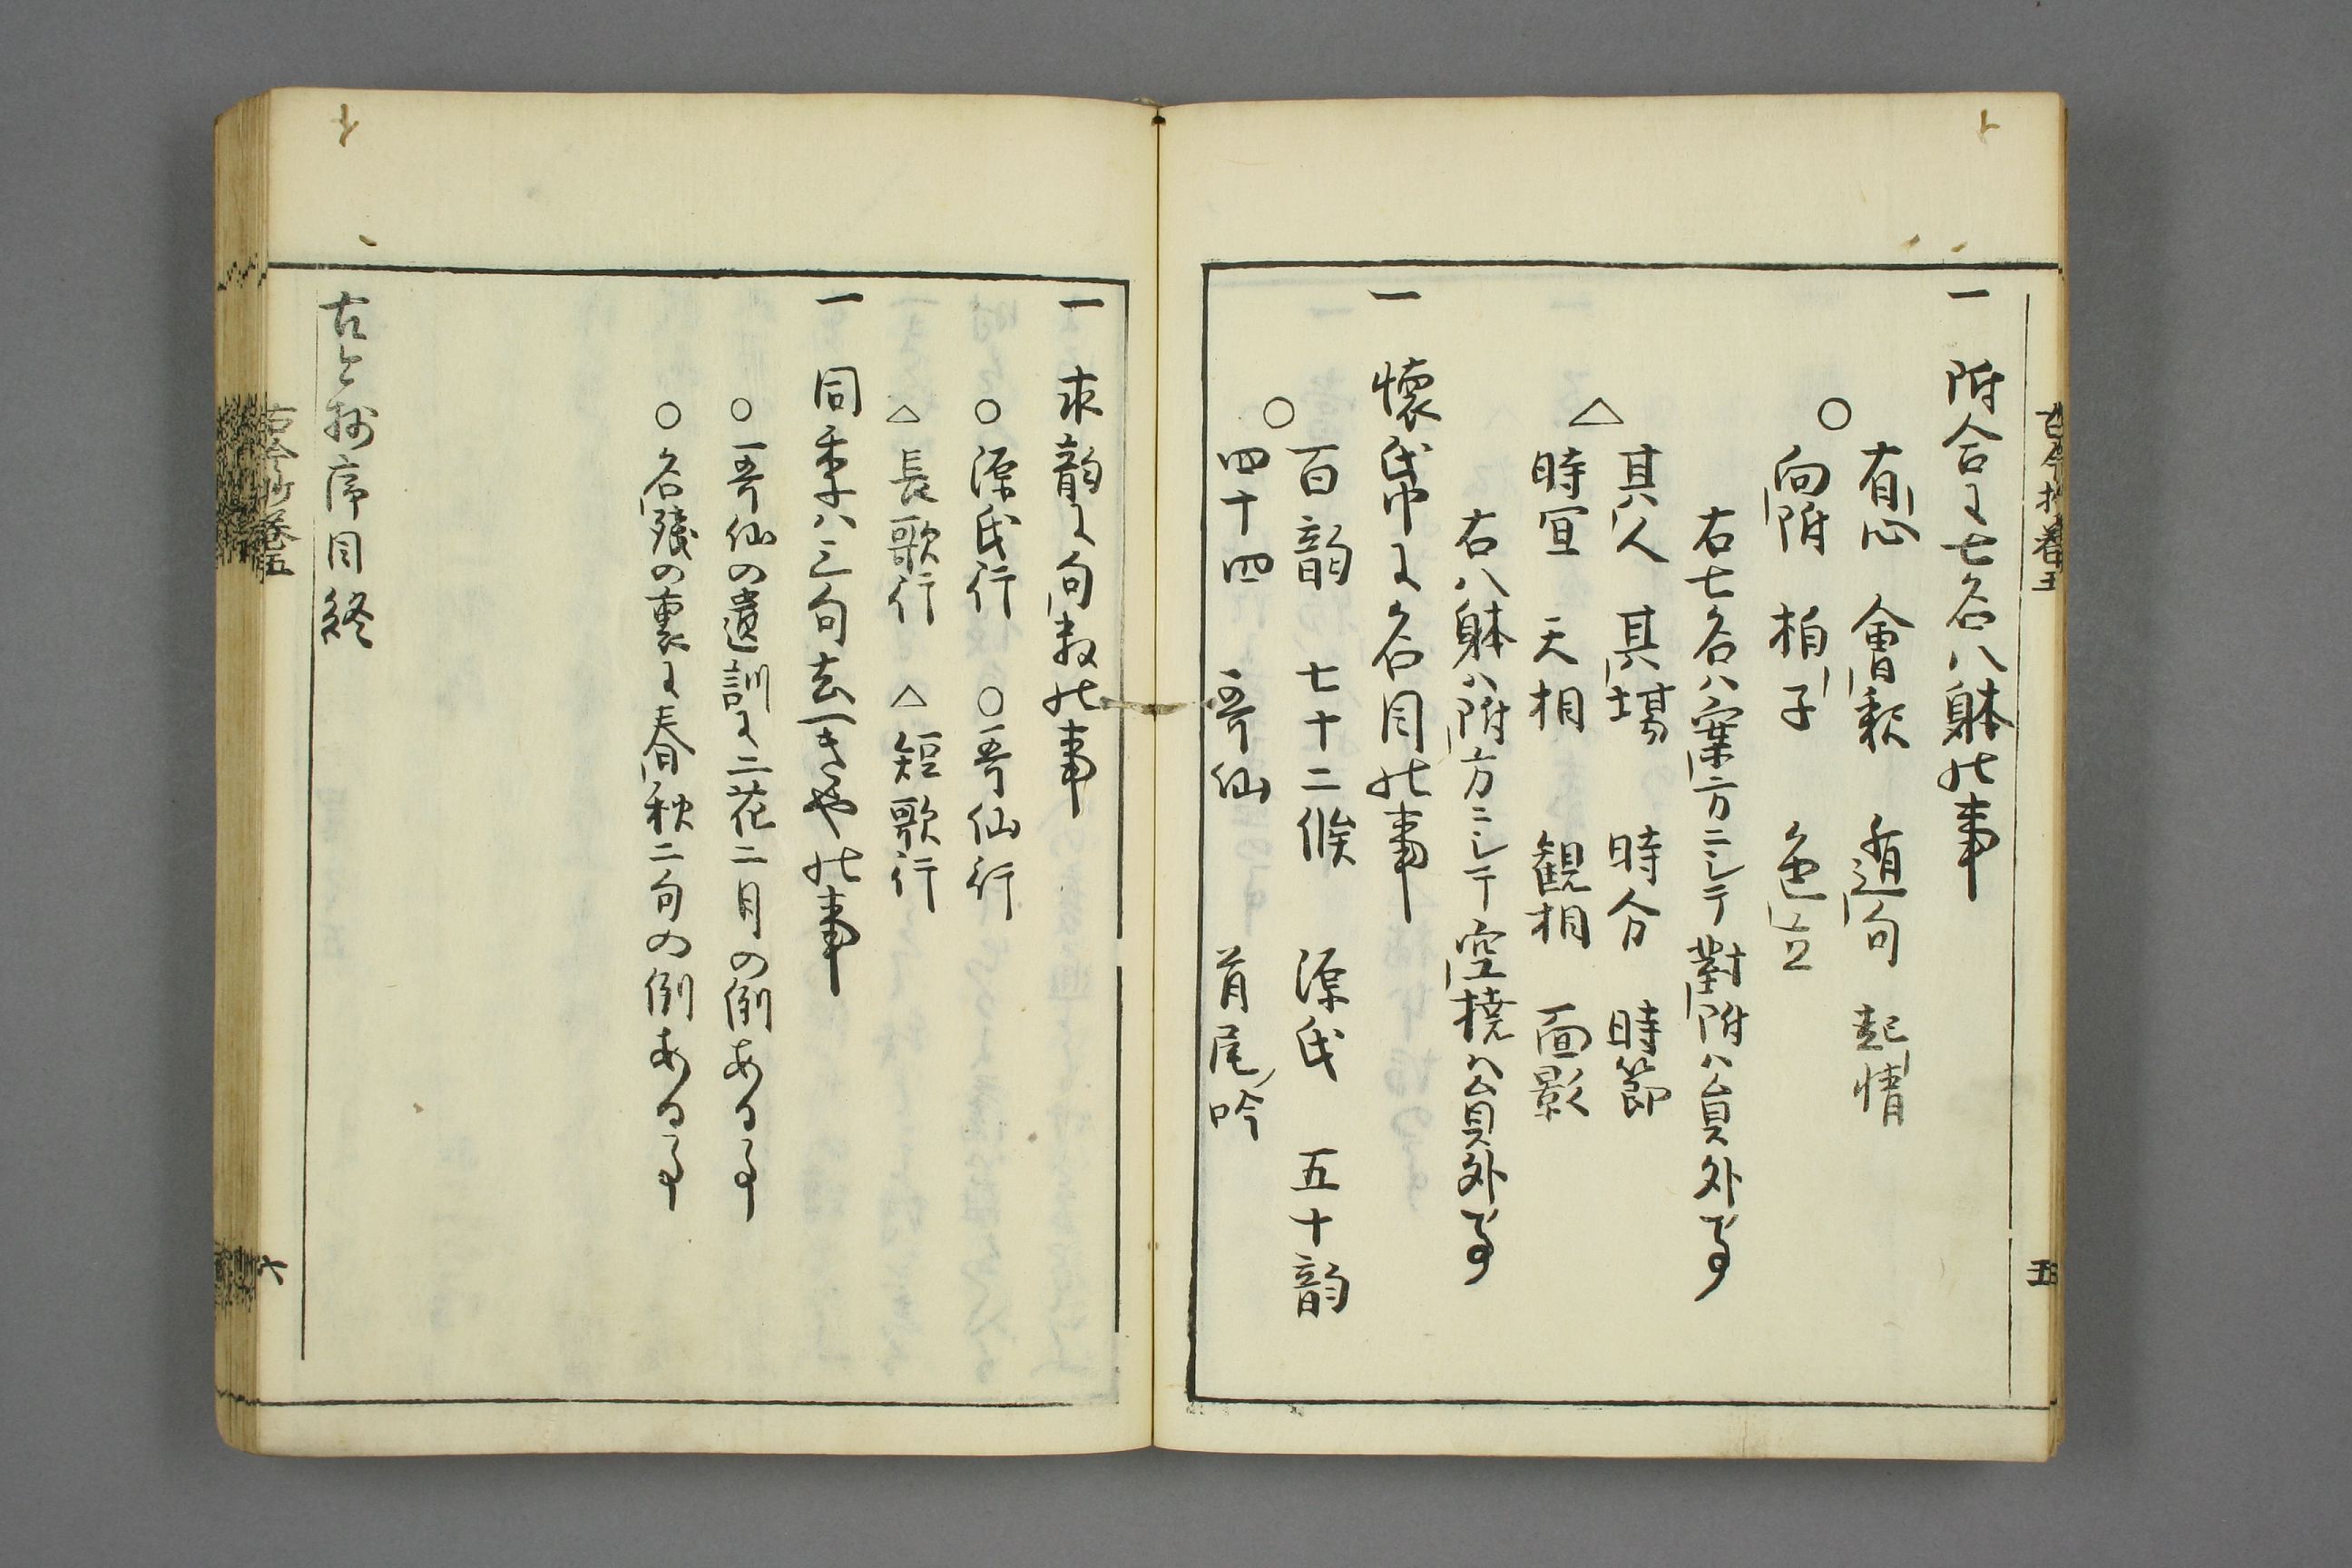 一 附合に七名八躰の事
○
有心 會釈 遁句 起情
向附 拍子 色立
右七名ハ案方ニシテ對附ハ員外也
△
其人 其場 時分 時節
時宜 天相 観相 面影
右八躰ハ附方ニシテ空撓ハ員外也
一 懐帋に名目の事
○
百韵 七十二候 源氏 五十韵
四十四 哥仙 首尾吟
古今抄巻五
五
一 求韵に句数の事
○源氏行 ○哥仙行
△長歌行 △短歌行
一 同季ハ三句去へきや の事
○哥仙の遺訓に二花二月の例ある事
○名残の裏に春秋二句の例ある事
古今抄序目終
古今抄巻五
六